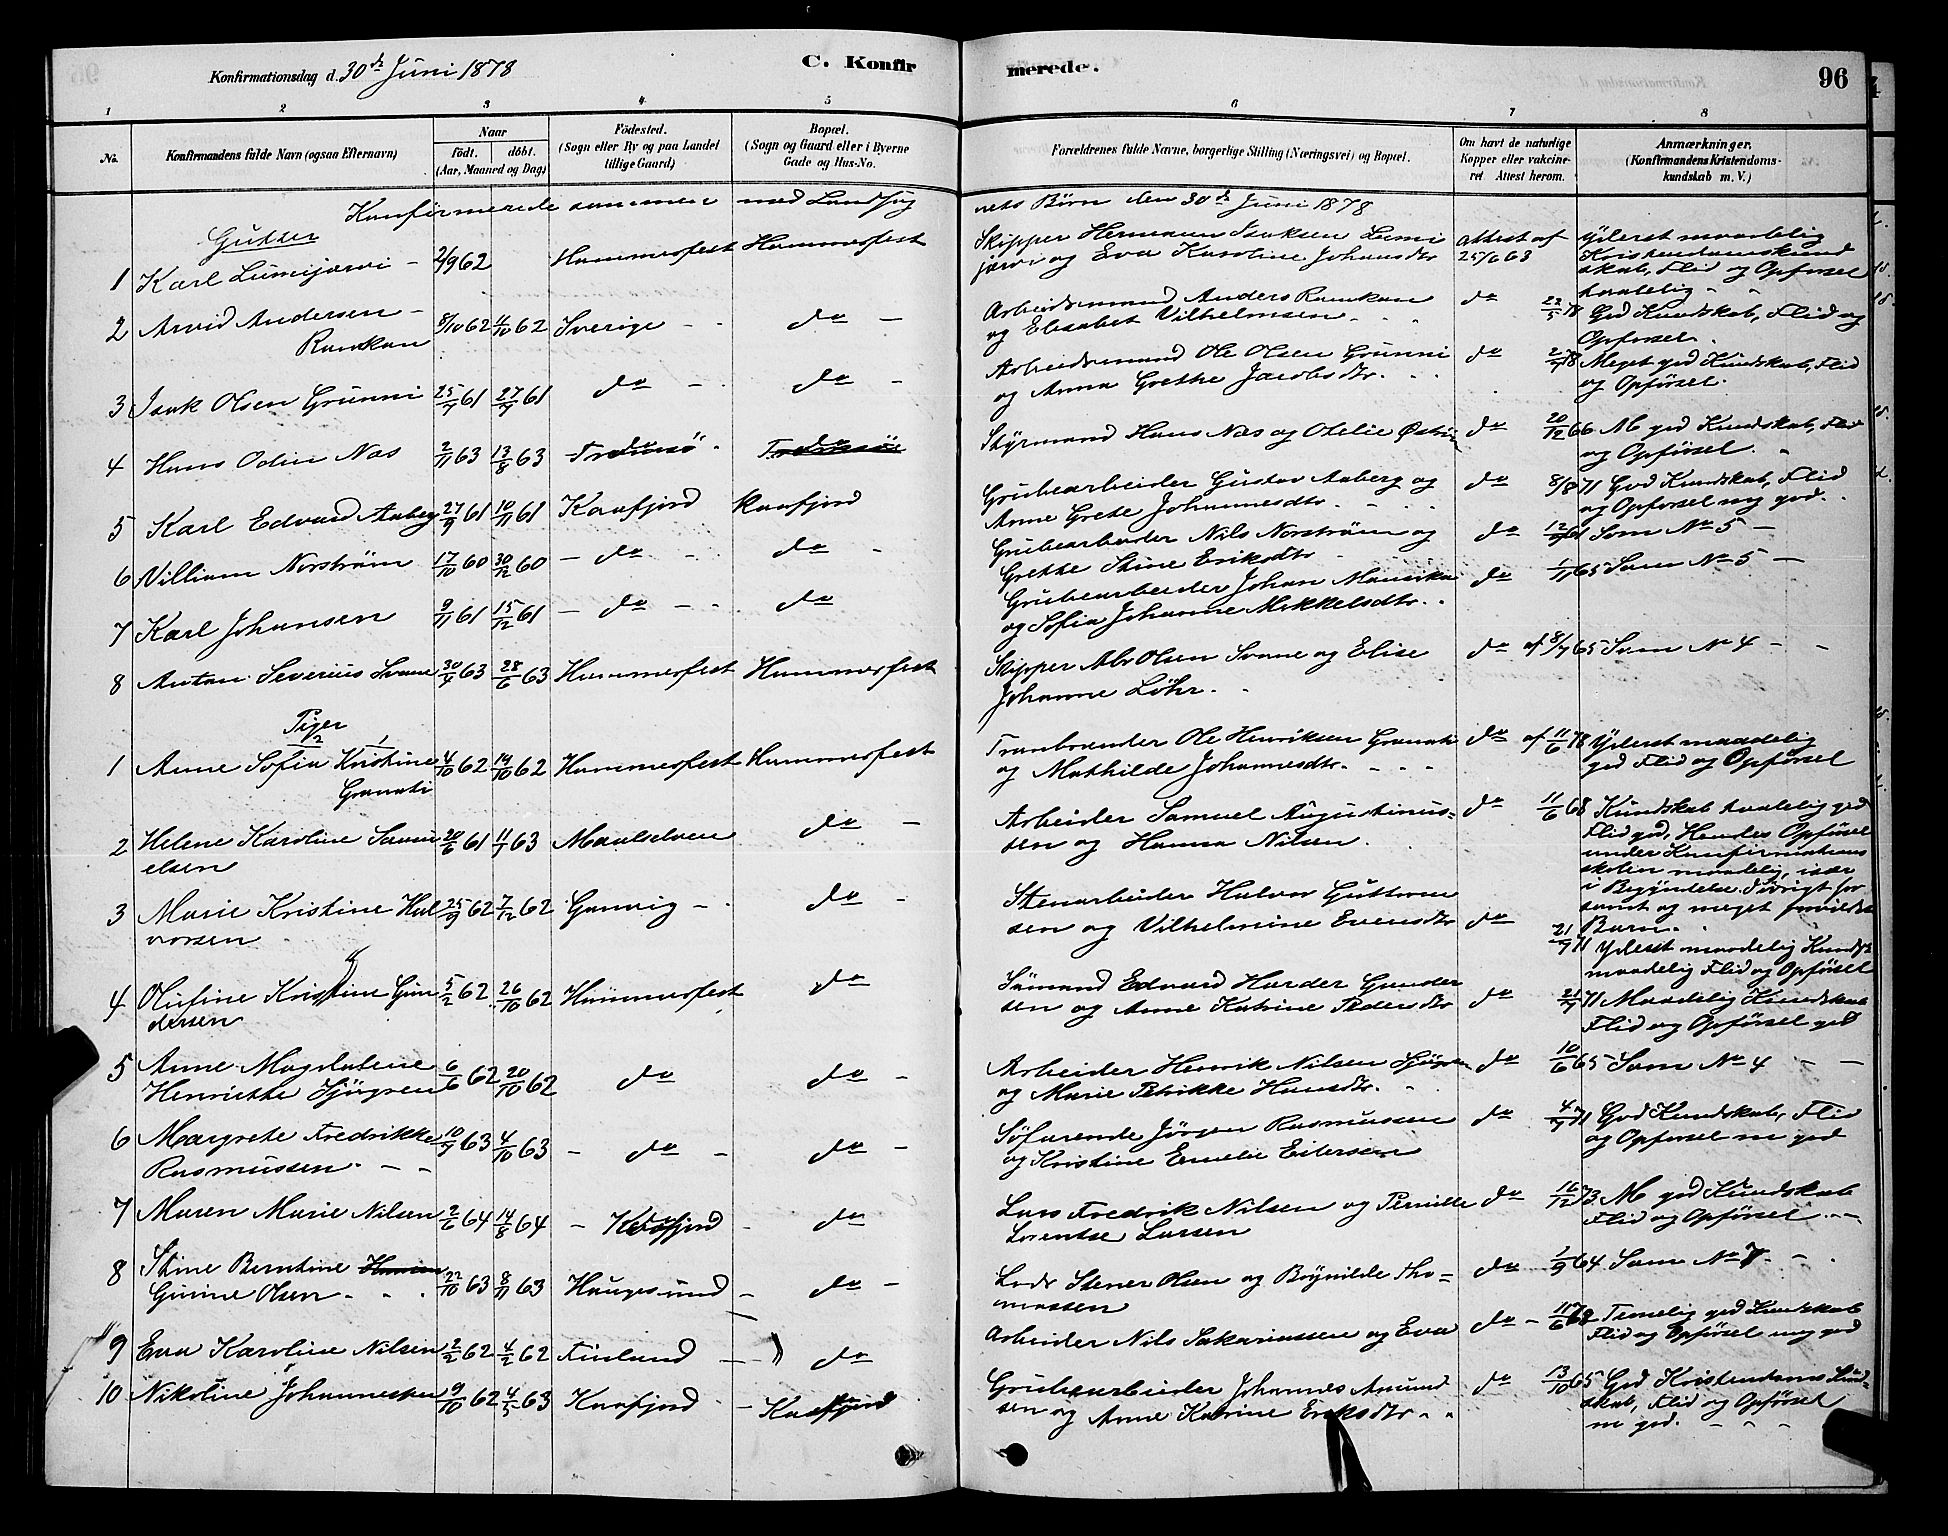 Konfirmationsdag d. 30te Juni 1878
C. Konfirmerede.
96
1 2 3 4 5 6 7 8
No.
Konfirmandens fulde Navn (ogsaa Efternavn)
Naar
födt. döbt.
(Aar, Maaned og Dag)
Födested.
(Sogn eller By og paa Landet
tillige Gaard)
Bopæl.
(Sogn og Gaard eller i Byerne
Gade og Hus-No.
Forældrenes fulde Navne, borgerlige Stilling (Næringsvei) og Bopæl.
Om havt de naturlige
Kopper eller vakcine-
ret Attest herom.
Anmærkninger.
(Konfirmandens Kristendoms-
kundskab m. V.)
Konfirmerede sammen med Landsog
nets Børn den 30te Juni 1878
Gutter
1 Karl Lumijarvi - 2/9 62 Hammerfest Hammerfest Skipper Herman Isaksen Lumi
jarvi og Eva Karoline Johansdtr attest af 25/6 63 Yderst maadelig
Kristendomskund
skab, Flid og Opførsel
taalelig - -
2 Arvid Andersen -
Rankan 8/10 62 11/10 62 Sverige - do - Arbeidsmand Anders Rankan
og Elisabet Vilhelmsen do 22/5 78 God Kundskab, Flid og
Opførsel.
3 Isak Olsen Grunni 25/7 61 27/7 61 do - do - Arbeidsmand Ole Olsen Grunni
og Anna Grethe Jacobsdtr. do 2/7 78 Meget god Kundskab, Flid
og Opførsel.
4 Hans Odin Næs 2/11 63 13/8 63 Tromsö do Tromsö do Styrmand Hans Næs og Otelie do 20/12 66 M god Kundskab, Flid
og Opførsel.
5 Karl Edvard Aaberg 27/9 61 10/11 61 Kaafjord Kaafjord Grubearbeider Gustav Aaberg og
Anne Grete Johannesdtr. do 8/8 71 God Kundskab, Flid
og Opførsel mg god.
6 Villiam Norström 17/10 60 30/12 60 - do - do - Grubearbeider Nils Norström og
Grethe Stine Eriksdtr do 12/9 61 Som No 5 -
7 Karl Johansen 9/11 61 15/12 61 - do - do Grubearbeider Johan
og Sofia Johanne Mikkelsdtr. do 1/11 65 Som No 5 -
8 Anton Severius Svane 30/4 63 28/6 63 Hammerfest Hammerfest Skipper Abr Olsen Svane og Elise
Johanne Löhr. do af 8/7 65 Som No 4 - -
Piger
1 Anne Sofia Kristine
Granati 4/10 62 19/10 62 Hammerfest Hammerfest Tranbrænder Ole Henriksen Granati
og Mathilde Johannesdtr. do af 11/6 78 Yderst maadelig
god Flid og Opførsel
2 Helene Karoline Samu
elsen 20/6 61 11/7 63 Maalselven do - Arbeider Samuel Augustinus-
sen og Hanna Nilsen. do 11/6 68 Kundskab taalelig god
Flid god, Hendes Opførsel
under Konfirmations
skolen maadelig, især
i Begyndelsen. Iøvrigt for
sømt og meget forvildet
Barn.
3 Marie Kristine Hal
vorsen 25/9 62 7/12 62 Gamvig - do - Stenarbeider Halvor Guttorm
sen og Vilhelmine Evensdtr do 21/9 71 Yderst maadelig Kundsk
maadelig Flid og Opførsel
4 Olufine Kristine Gun
dersen 5/2 62 26/10 62 Hammerfest do Sømand Edvard Harder Gunder
sen og Anne Katrine Pedersdtr do 21/9 71 Maadelig Kundskab
Flid og Opførsel god
5 Anne Magdalene
Henriette Sjögren 6/6 62 20/10 62 do do - Arbeider Henrik Nilsen Sjögren
og Marie Petrikke Hansdtr. do 10/6 65 Som No 4 - -
6 Margrete Fredrikke
Rasmussen. - - 10/9 63 4/10 63 - do - do - Söfarende Jörgen Rasmussen
og Kristine Emelie Eilersen do 4/9 71 God Kundskab, Flid
og Opførsel m god
7 Maren Marie Nilsen 2/6 64 14/8 64 - Kaafjord - do Lars Fredrik Nilsen og Pernille
Lorentse Larsen do 16/12 73 M god Kundskab
Flid og Opførsel. -
8 Stine Berntine
Gurine Olsen - 22/10 63 8/11 63 Haugesund - do - Lods Stener Olsen og Brynilde Tho-
massen do 1/9 64 Som No 7. -
9 Eva Karoline Nilsen 2/2 62 4/2 62 Finland - do Arbeider Nils Sakariassen og Eva do - 11/6 Temelig god Kundskab
Flid og Opførsel mg god
10 Nikoline Johannessen 9/10 62 4/5 63 Kaafjord - Kaafjord Grubearbeider Johannes Amund
sen og Anne Katrine Eriksdtr - do 13/10 65 God Kristendoms Kund-
skab, Flid og Opførsel
m god. - - -